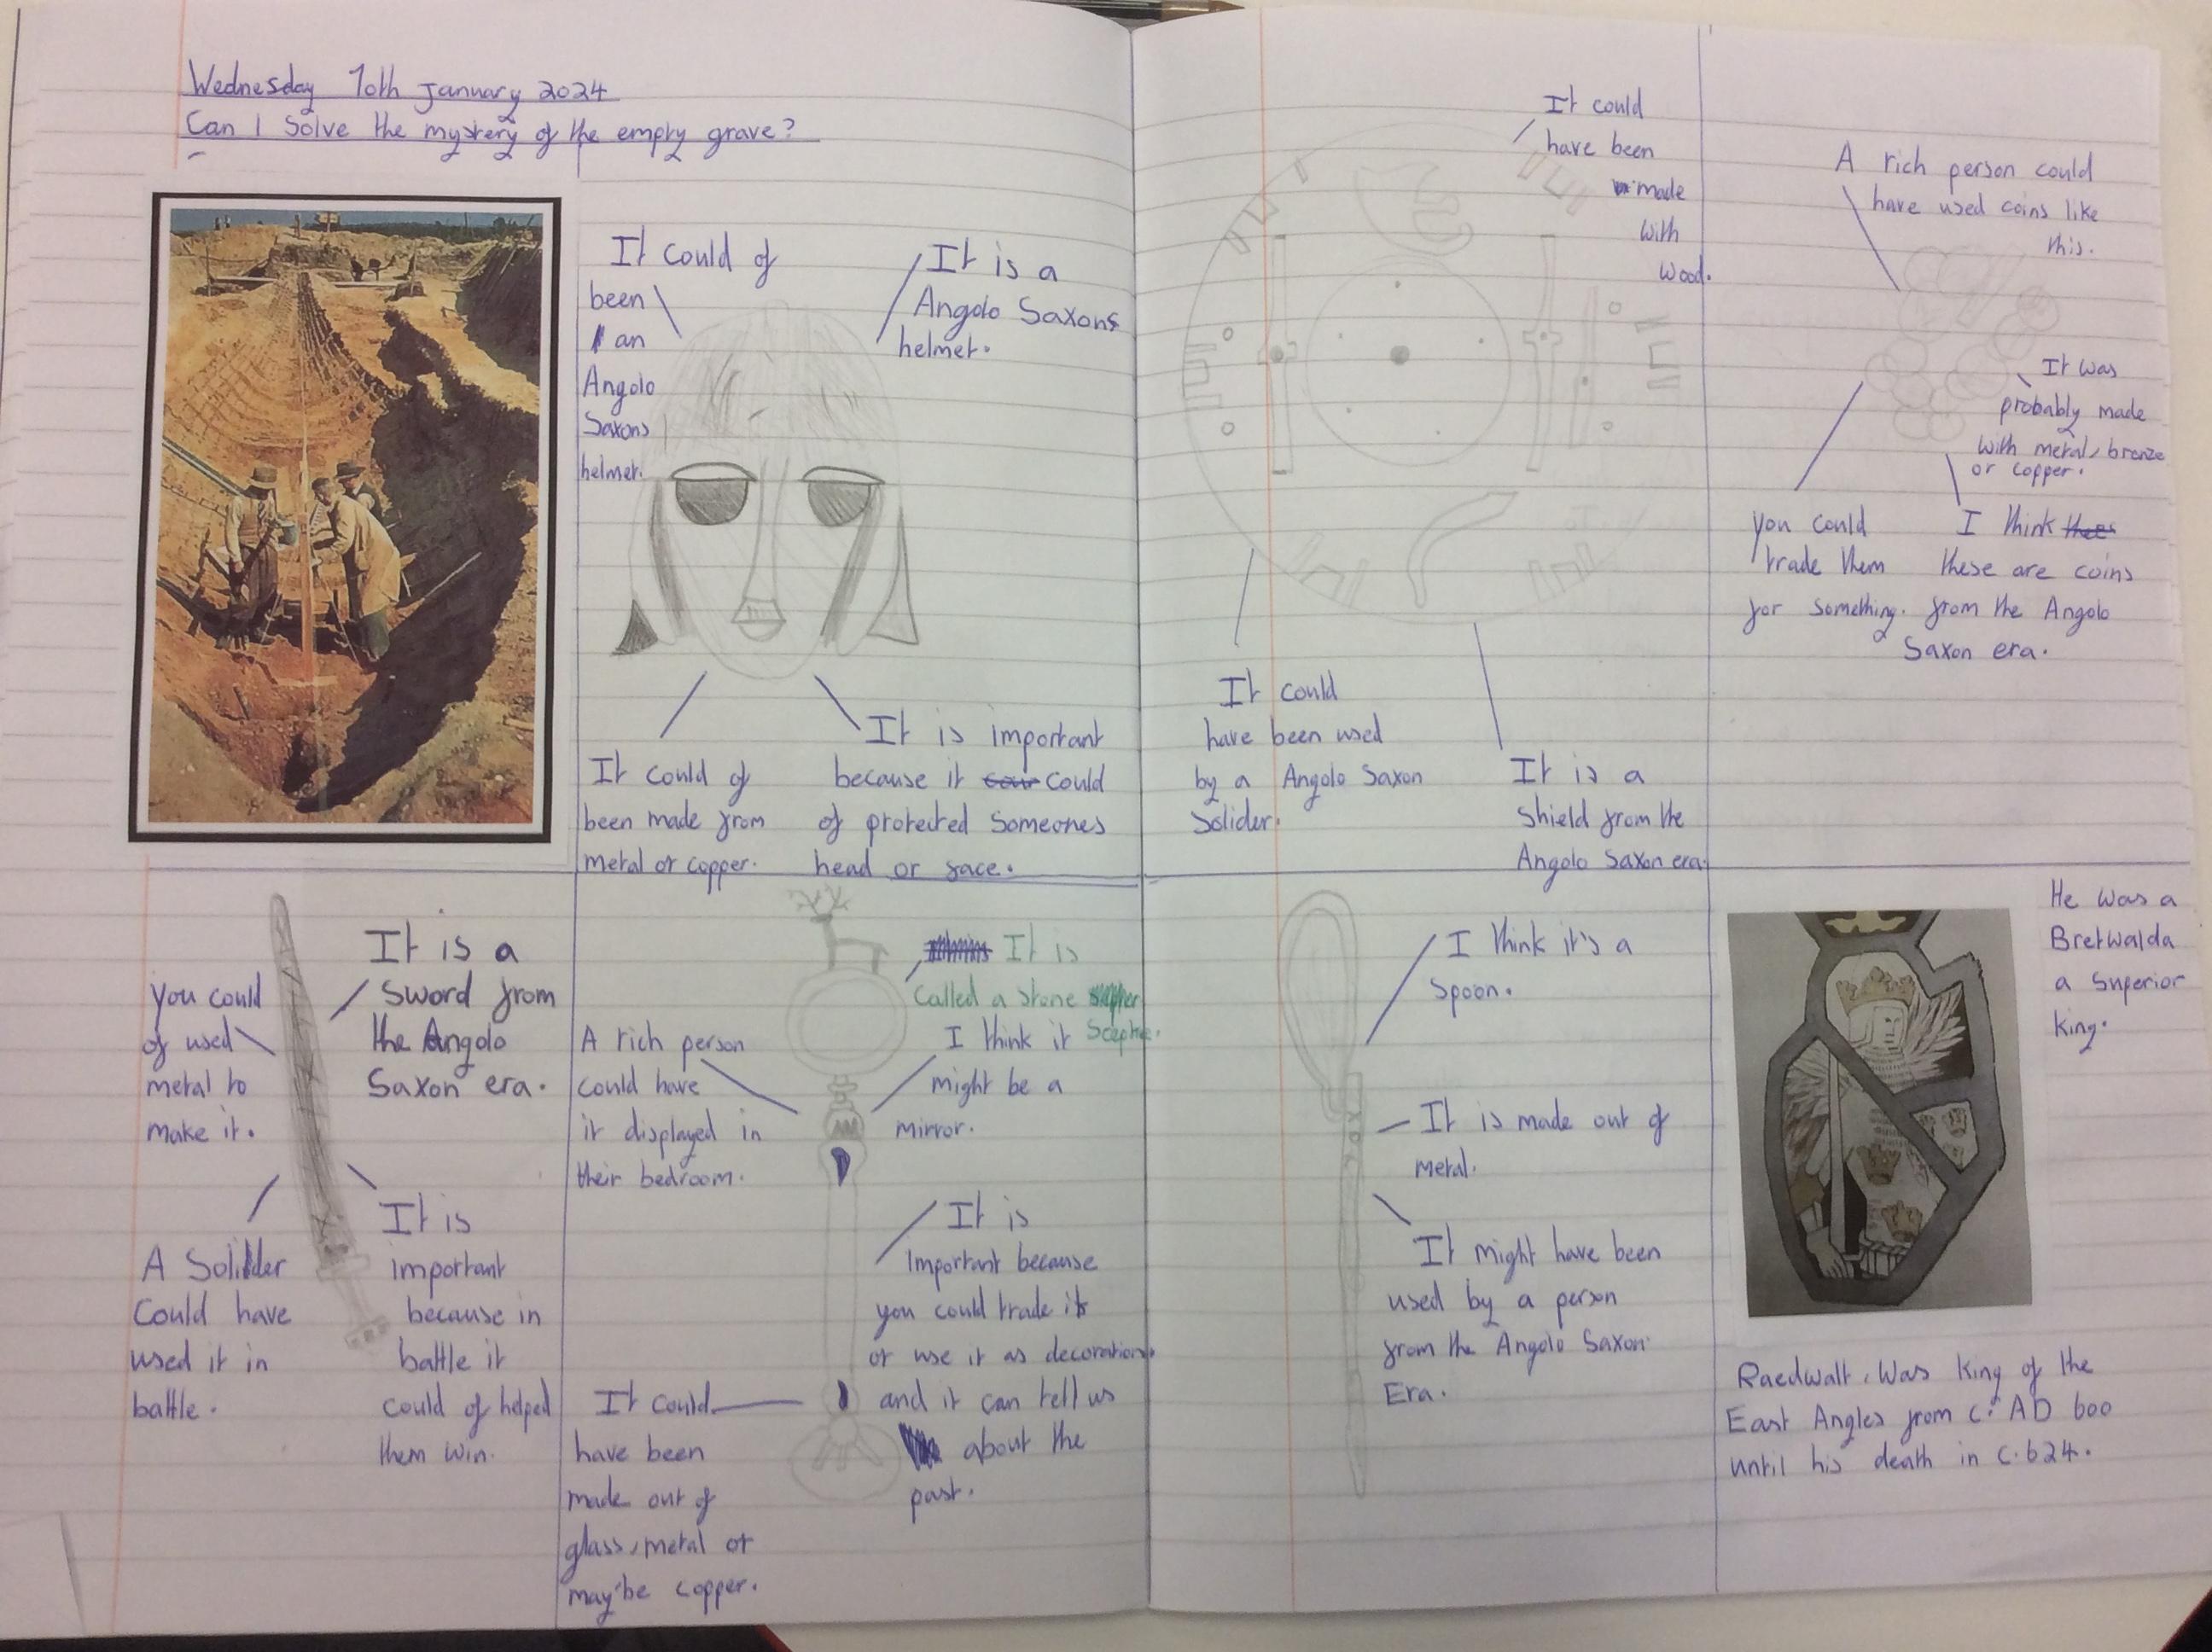 Wednesday 10th January 2024
Can I Solve the mystery of the empty grave?
It could of
been
an
Angolo
Saxons
helmet.
It is a
Angolo Saxons
helmet.
It could of
been made from
metal or copper.
It is important
because it could
of protected someones
head or face.
It could
have been
made
with
wood.
It could
have been used
by a Angolo Saxon
Solider.
It is a
Shield from the
Angolo Saxon era.
A rich person could
have used coins like
this.
It was
probably made
with metal, bronze
or copper.
you could
trade them
for something.
I think
these are coins
from the Angolo
Saxon era.
you could
of used
metal to
make it.
It is a
sword from
the Angolo
Saxon era.
A Solider
Could have
used it in
battle.
It is
important
because in
battle it
could of helped
them win.
It is
called a stone
Sceptre.
A rich person
could have
it displayed in
their bedroom.
I think it
might be a
mirror.
It is
Important because
you could trade it
or use it as decorations
and it can tell us
about the
past.
It could
have been
made out of
glass, metal or
maybe copper.
I think it's a
spoon.
It is made out of
metal.
It might have been
used by a person
from the Angolo Saxon
Era.
He was a
Bretwalda
a superior
king.
Raedwalt, was king of the
East Angles from c. AD 600
until his death in c. 624.